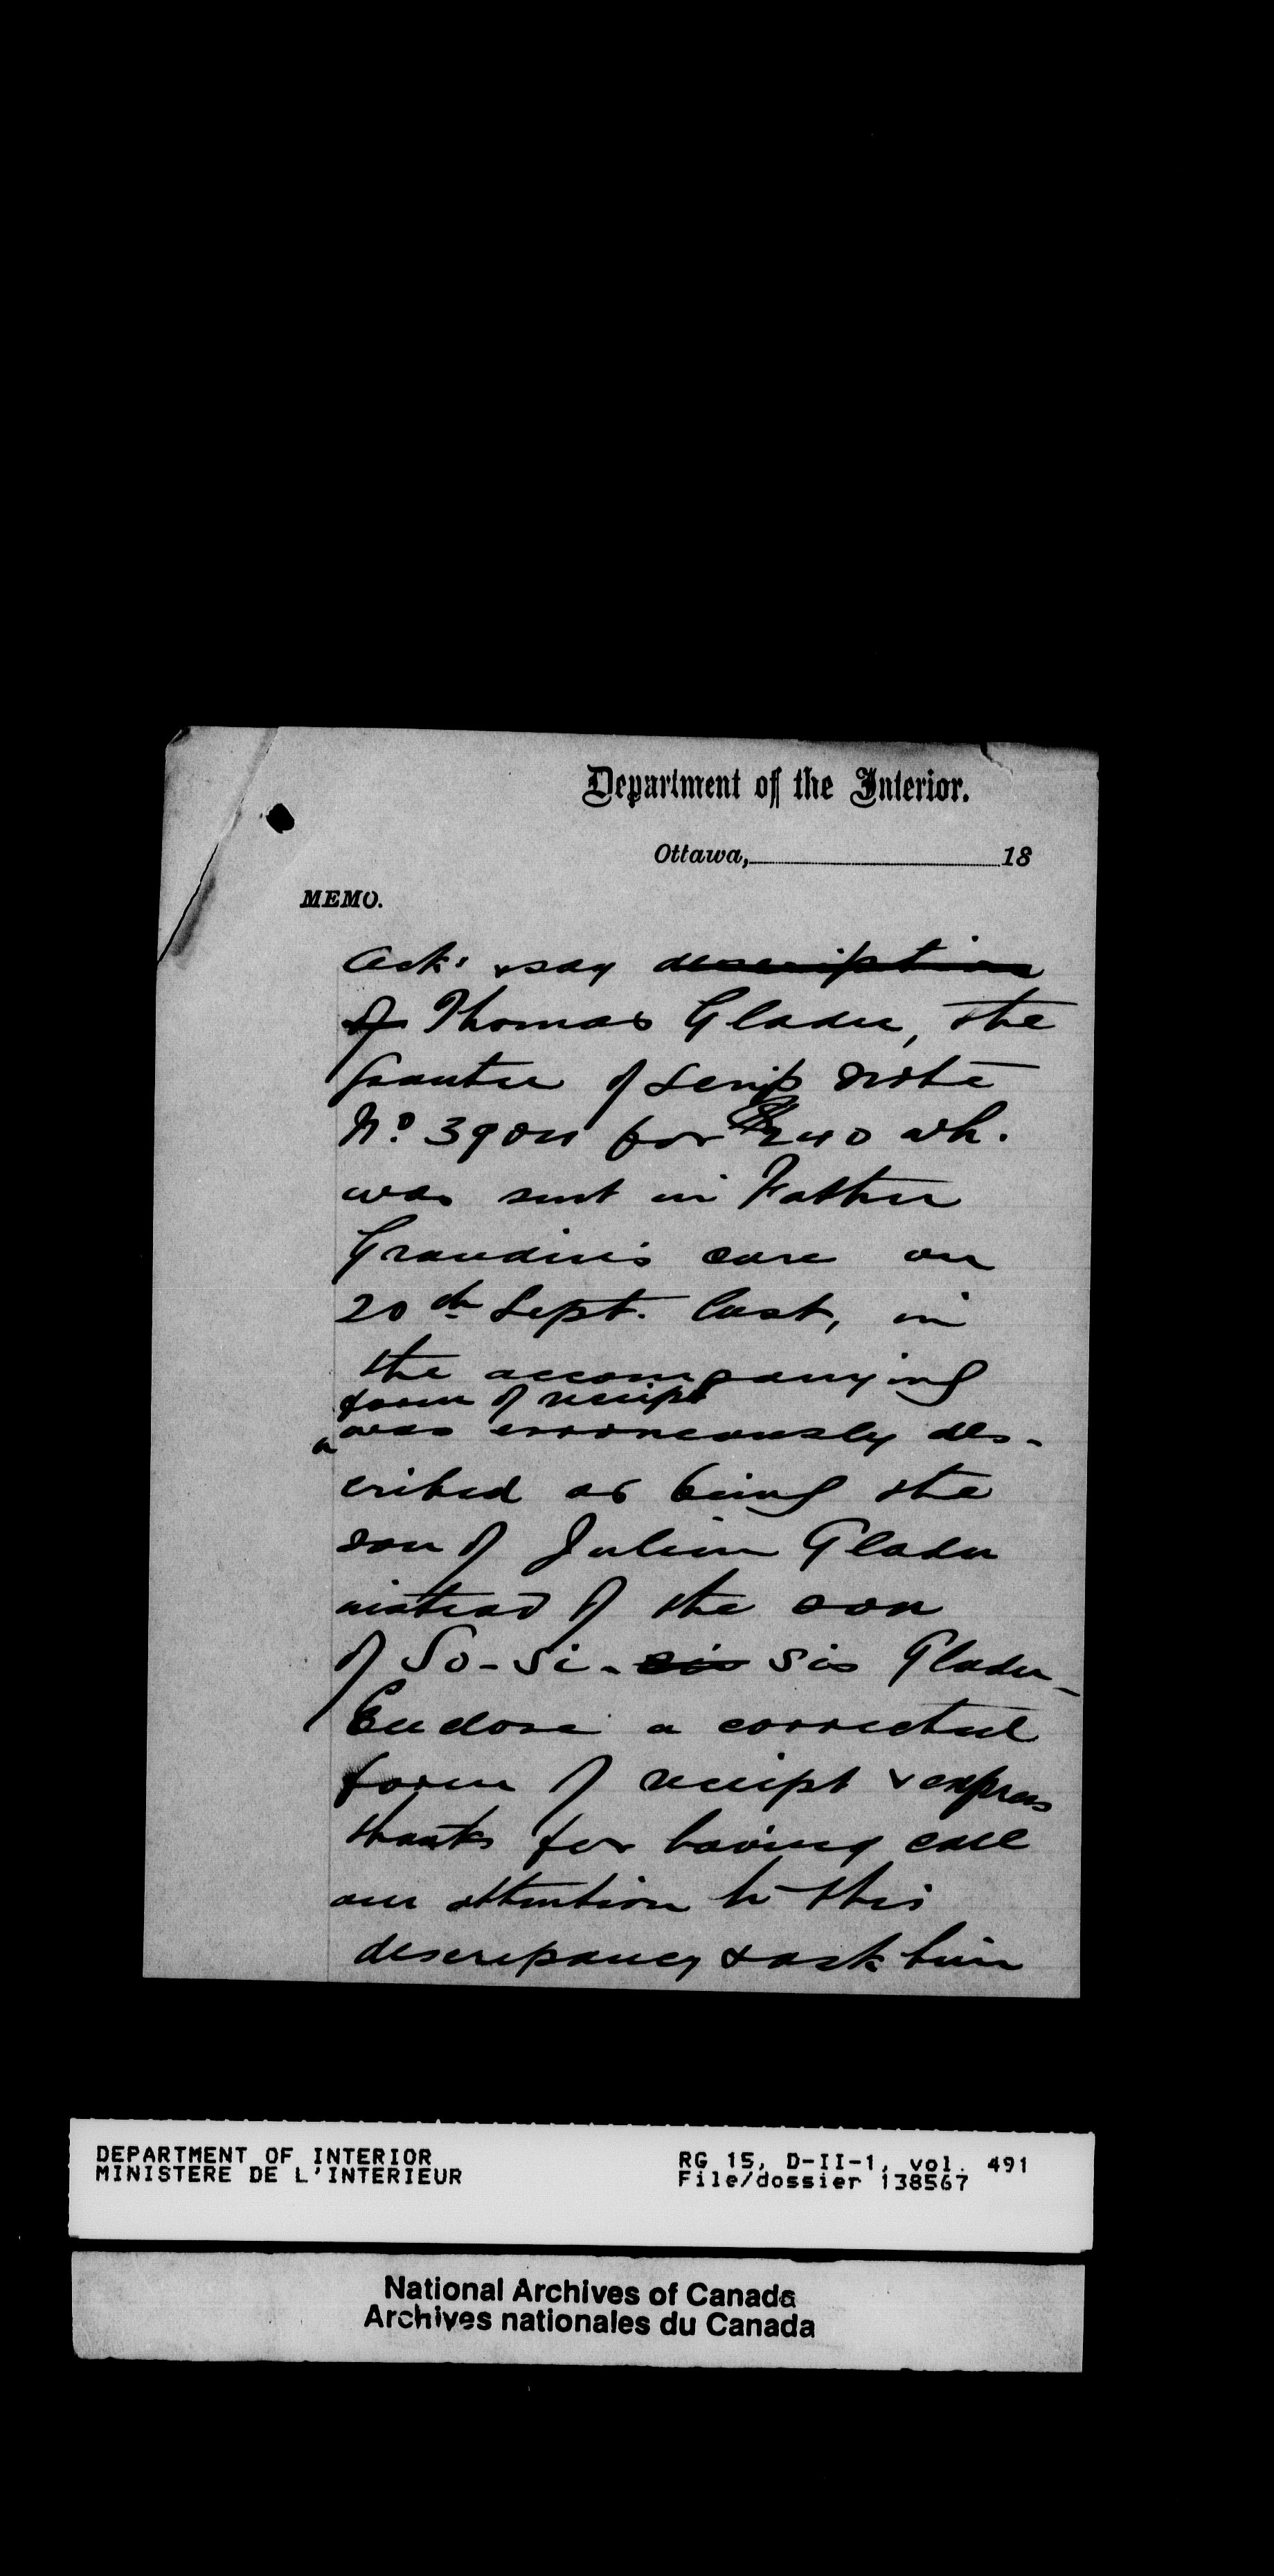 Department of the Interior.
Ottawa, 18
MEMO.
Ack. & say description
of Thomas Gladu, the
Grantee of Scrip Note
No. 3904 for $240 wh.
was sent in Father
Grandin's care on
20th Sept. last, in
the accompanying
form of receipt
was erroneously des-
cribed as being the
son of Julien Gladu
instead of the son
of So-Si-sis Sis Gladu_
Enclose a corrected
form of receipt & express
thanks for having call
our attention to this
descrepancy & ask him
DEPARTMENT OF INTERIOR
MINISTERE DE L'INTERIEUR
RG 15, D-II-1, vol. 491
File/dossier 138567
National Archives of Canada
Archives nationales du Canada